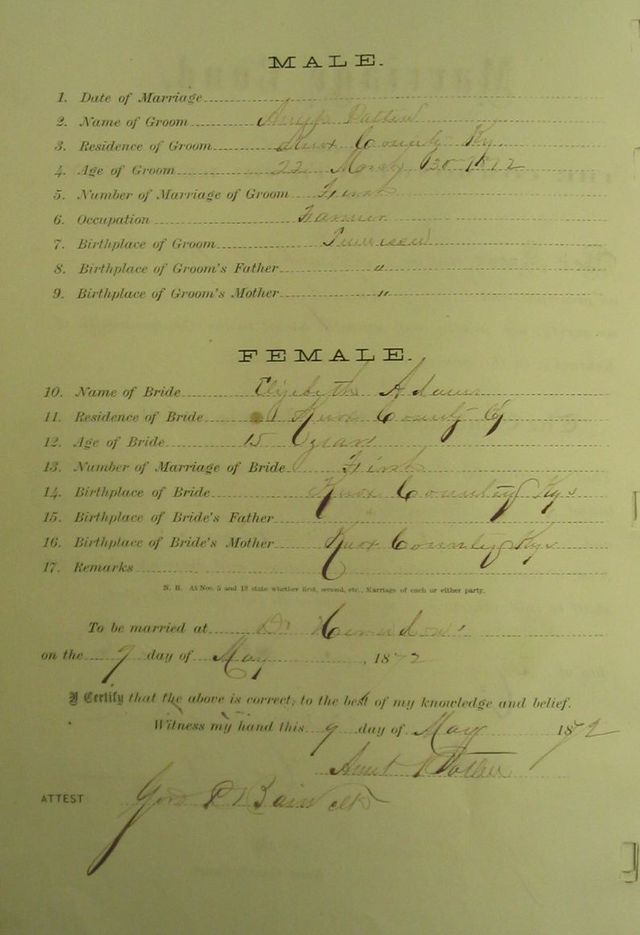 MALE.
1. Date of Marriage
2. Name of Groom
3. Residence of Groom Knox County Ky.
4. Age of Groom 22 March 30 1872
5. Number of Marriage of Groom First
6. Occupation Farmer
7. Birthplace of Groom
8. Birthplace of Groom's Father "
9. Birthplace of Groom's Mother "
FEMALE.
10. Name of Bride Adams
11. Residence of Bride Knox County
12. Age of Bride 15
13. Number of Marriage of Bride First
14. Birthplace of Bride Knox County Ky
15. Birthplace of Bride's Father "
16. Birthplace of Bride's Mother Knox County Ky
17. Remarks
N. B. At Nos. 5 and 13 state whether first, second, etc., Marriage of each or either party.
To be married at
on the 9 day of May, 1872
I Certify that the above is correct, to the best of my knowledge and belief.
Witness my hand this 9 day of May 1872
ATTEST